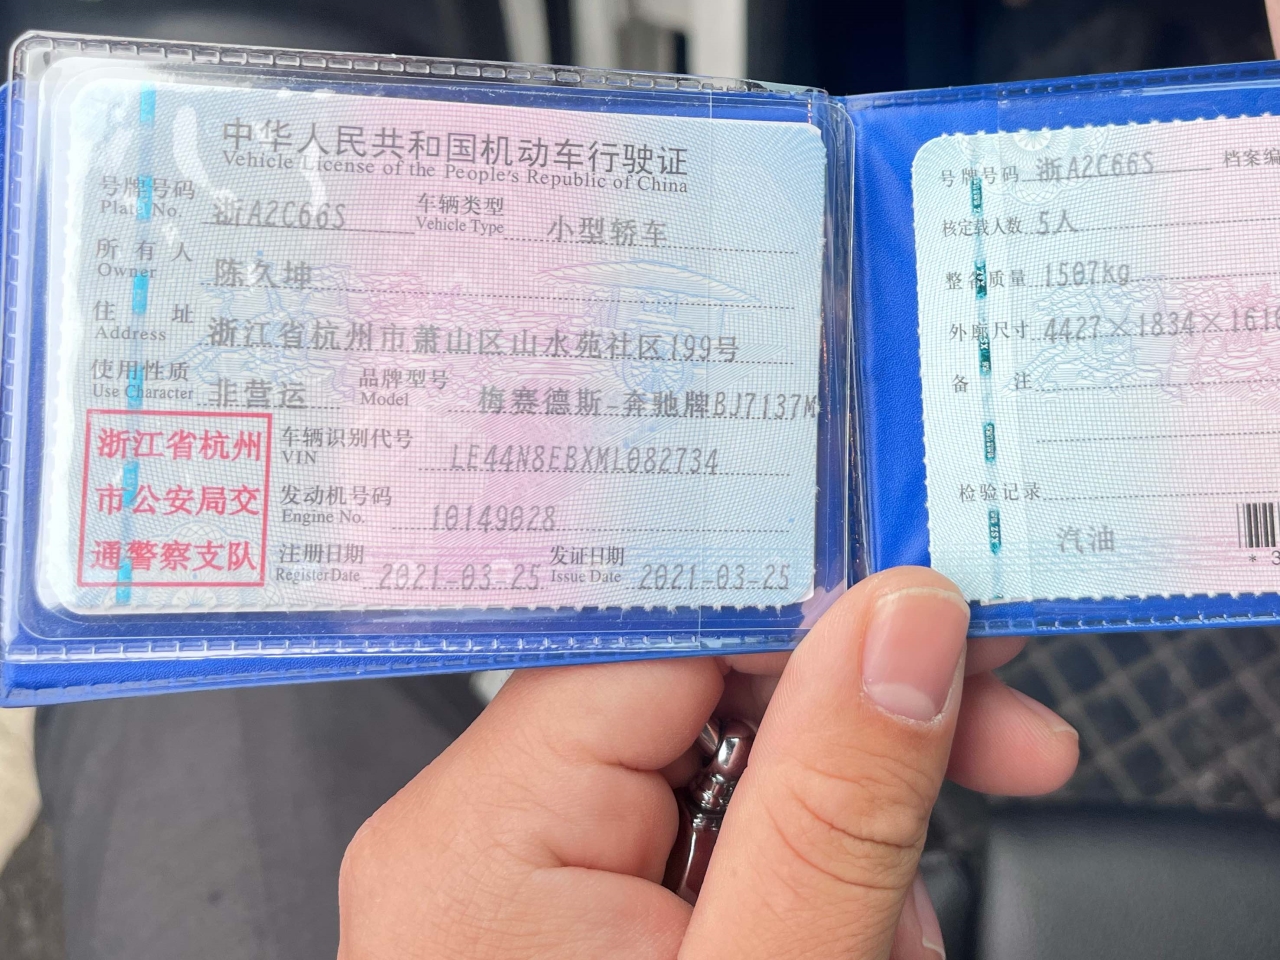 中华人民共和国机动车行驶证
Vehicle License of the People's Republic of China
号牌号码 浙A2C66S 车辆类型 小型轿车
Plate No. Vehicle Type
所有人 陈久坤
Owner
住址 浙江省杭州市萧山区山水苑社区199号
Address
使用性质 非营运 品牌型号 梅赛德斯-奔驰牌BJ7137M
Use Character Model
浙江省杭州
市公安局交
通警察支队
车辆识别代号 LE44N8EBXML082734
VIN
发动机号码 10149028
Engine No.
注册日期 2021-03-25 发证日期 2021-03-25
Register Date Issue Date
号牌号码 浙A2C66S 档案编
核定载人数 5人
整备质量 1507kg
外廓尺寸 4427×1834×1610
备注
检验记录
汽油
* 3